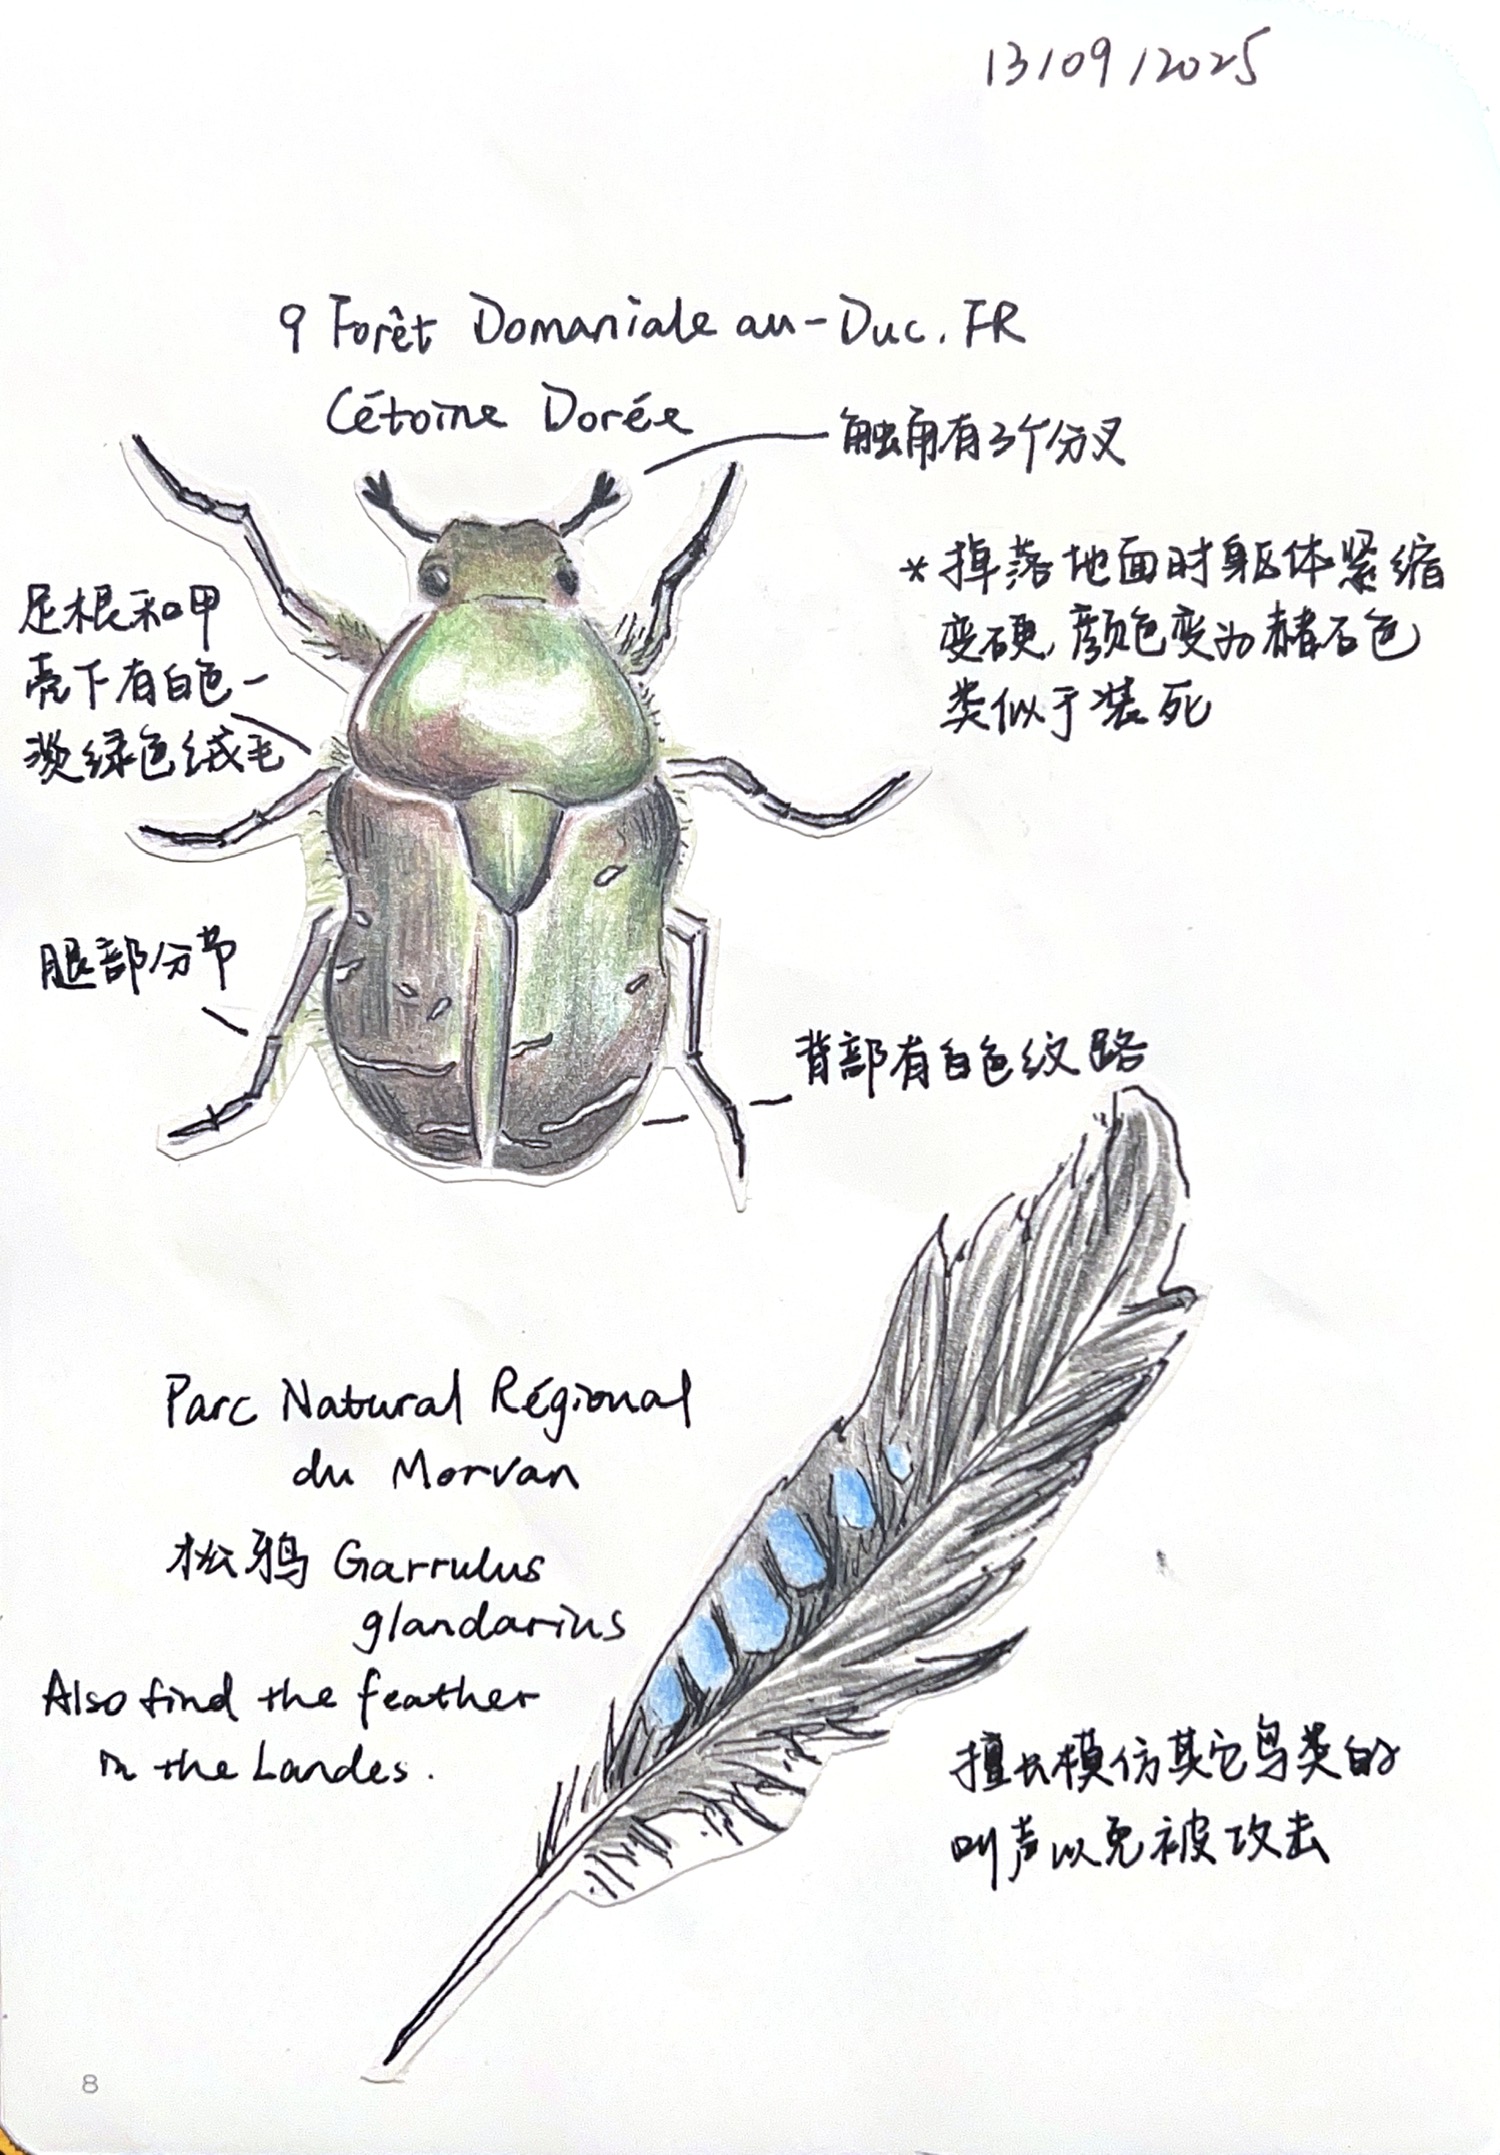 13/09/2025
9 Forêt Domaniale au-Duc. FR
Cétoine Dorée
触角有3个分叉
*掉落地面时躯体紧缩
变硬,颜色变为赭石色
类似于装死
足根和甲
壳下有白色-
淡绿色绒毛
腿部分节
背部有白色纹路
Parc Natural Régional
du Morvan
松鸦 Garrulus
glandarius
Also find the feather
in the Landes.
擅长模仿其它鸟类的
叫声以免被攻击
8